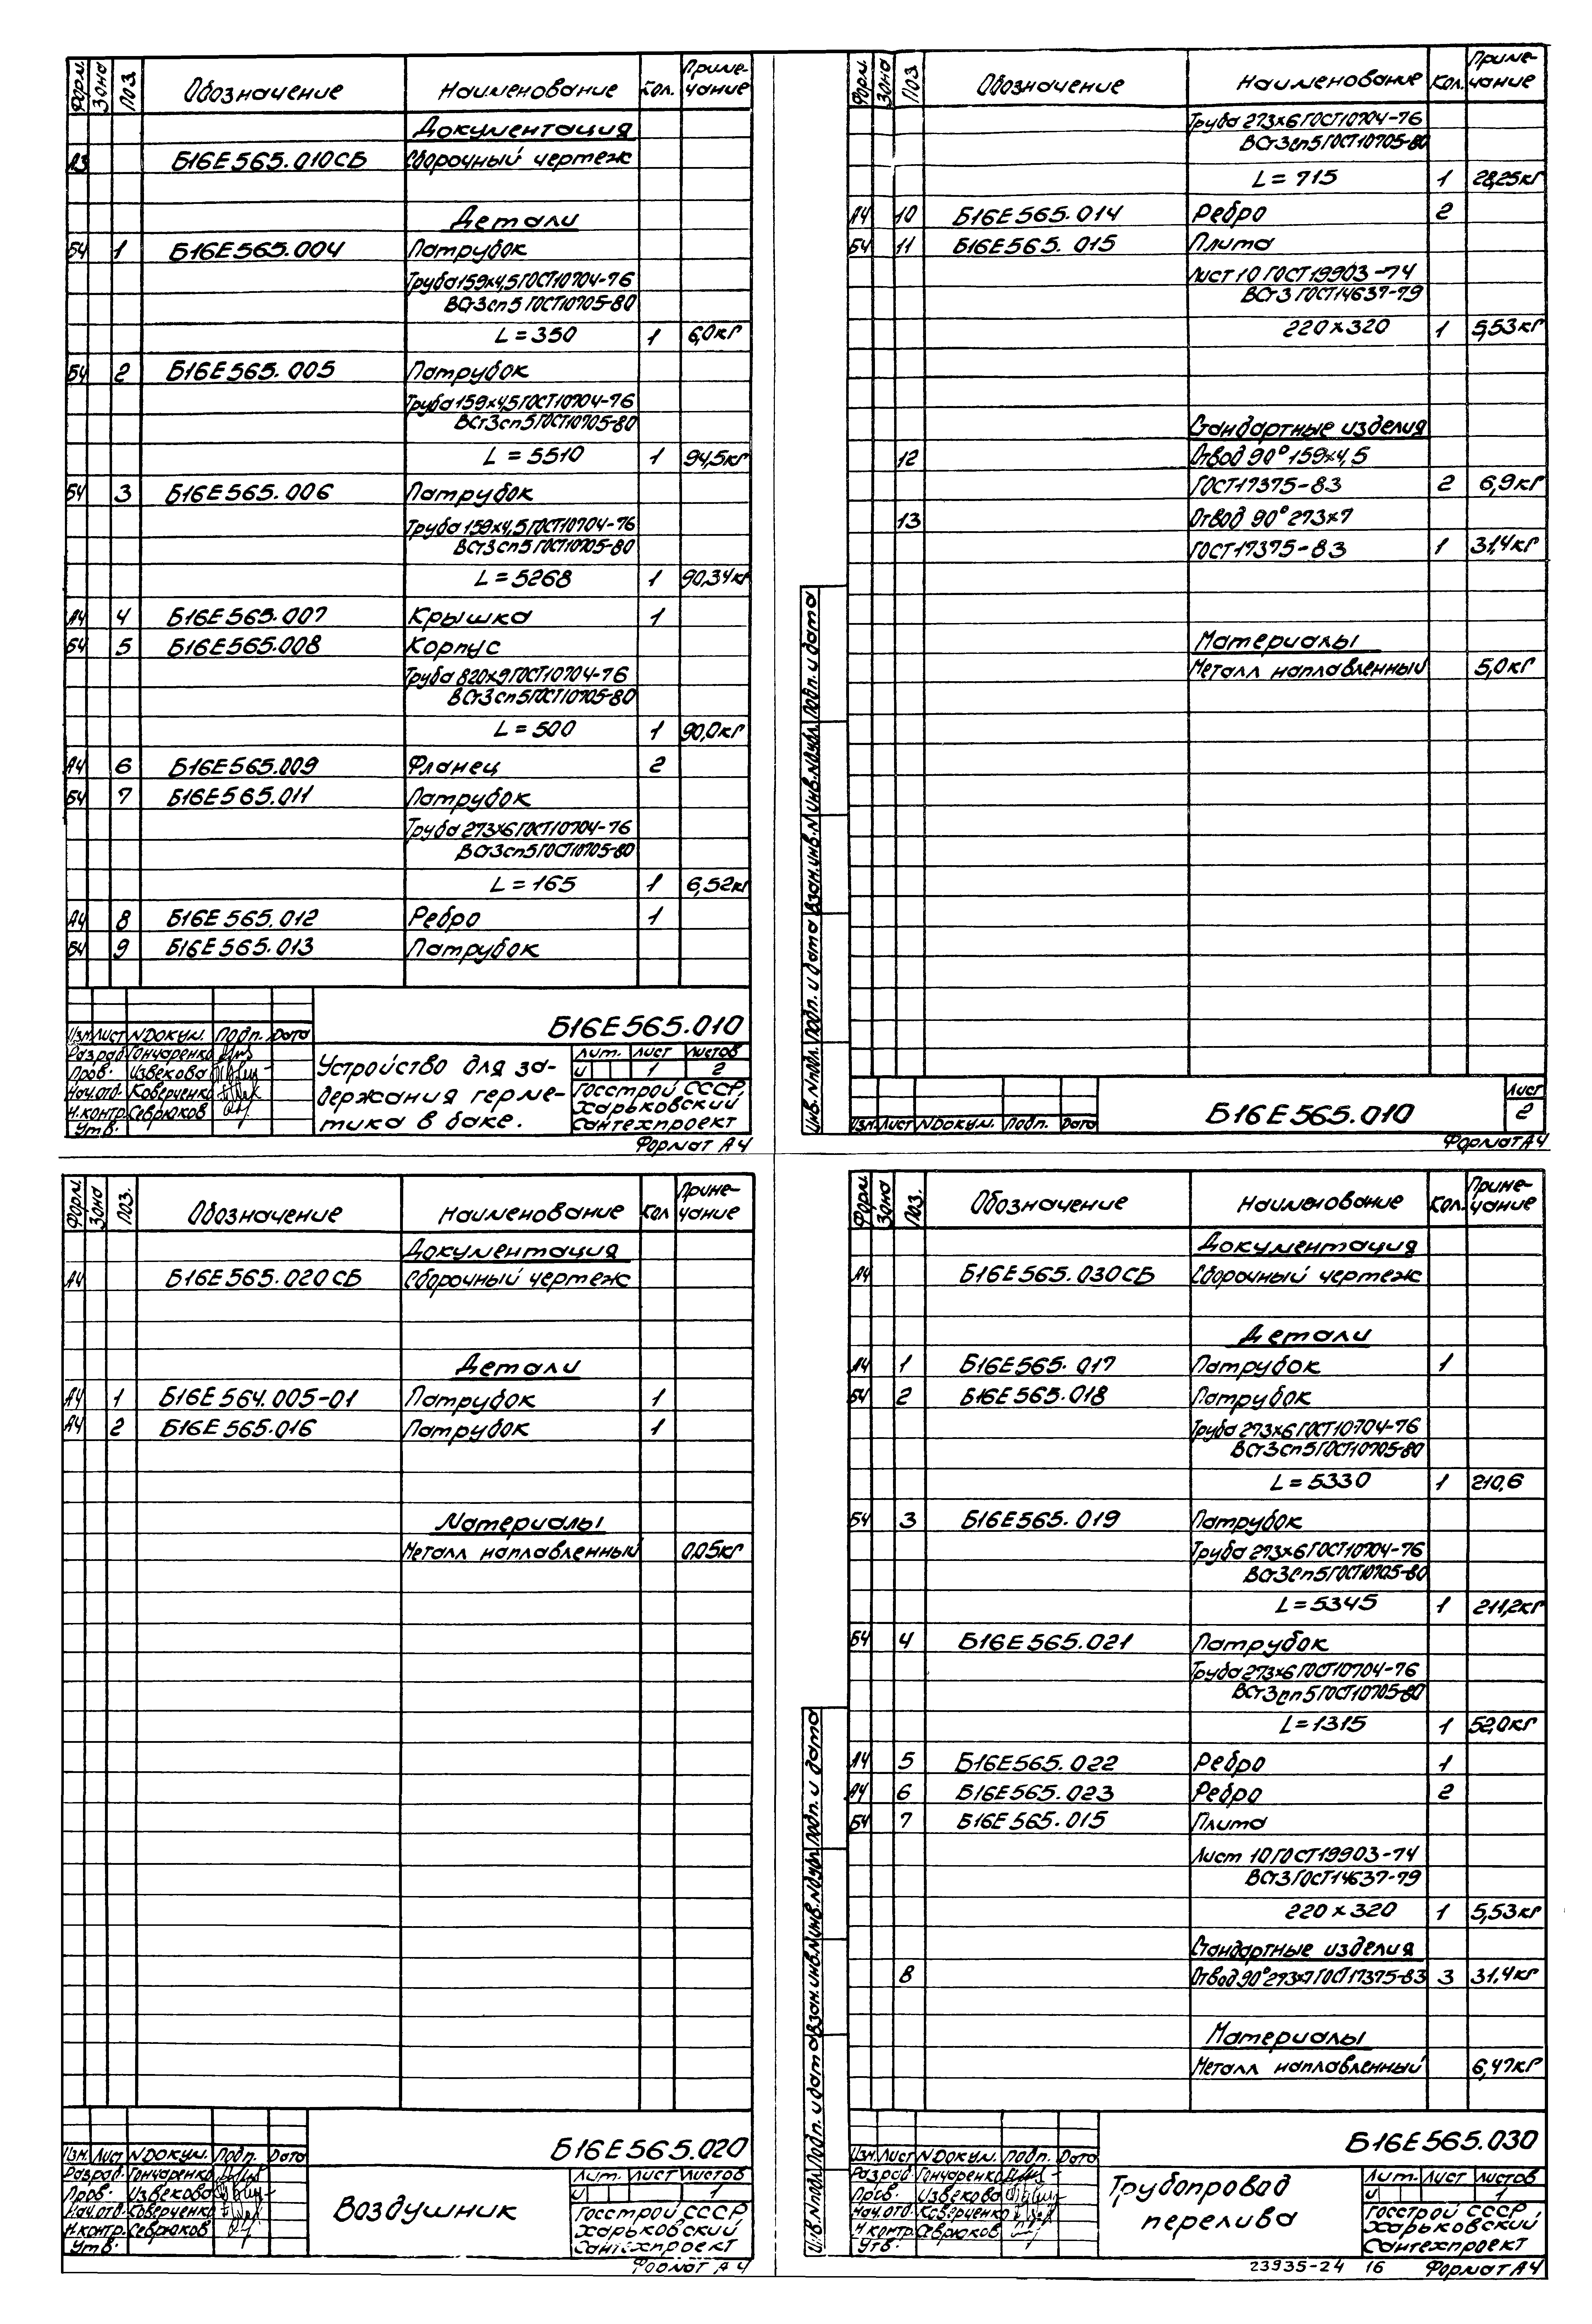 Форм. Зона Поз. Обозначение Наименование Кол. Приме-
чание
Документация
А3 Б16Е565.010СБ Сборочный чертеж
Детали
Б4 1 Б16Е565.004 Патрубок
Труба 159х4,5 ГОСТ10704-76
ВСт3сп5 ГОСТ10705-80
L=350 1 6,0кг
Б4 2 Б16Е565.005 Патрубок
Труба 159х4,5 ГОСТ10704-76
ВСт3сп5 ГОСТ10705-80
L=5510 1 94,5кг
Б4 3 Б16Е565.006 Патрубок
Труба 159х4,5 ГОСТ10704-76
ВСт3сп5 ГОСТ10705-80
L=5268 1 90,34кг
А4 4 Б16Е565.007 Крышка 1
Б4 5 Б16Е565.008 Корпус
Труба 820х9 ГОСТ10704-76
ВСт3сп5 ГОСТ10705-80
L=500 1 90,0кг
А4 6 Б16Е565.009 Фланец 2
Б4 7 Б16Е565.011 Патрубок
Труба 273х6 ГОСТ10704-76
ВСт3сп5 ГОСТ10705-80
L=165 1 6,52кг
А4 8 Б16Е565.012 Ребро 1
Б4 9 Б16Е565.013 Патрубок
Б16Е565.010
Изм Лист №Докум. Подп. Дата
Разраб. Гончаренко
Пров. Извекова
Нач.отд. Коверченко
Н.контр. Севрюков
Утв.
Устройство для за-
держания герме-
тика в баке.
Лит. Лист Листов
И 1 2
Госстрой СССР,
Харьковский
Сантехпроект
Формат А4
Форм. Зона Поз. Обозначение Наименование Кол. Приме-
чание
Труба 273х6 ГОСТ10704-76
ВСт3сп5 ГОСТ10705-80
L=715 1 28,25кг
А4 10 Б16Е565.014 Ребро 2
Б4 11 Б16Е565.015 Плита
Лист 10 ГОСТ19903-74
ВСт3 ГОСТ14637-79
220х320 1 5,53кг
Стандартные изделия
12 Отвод 90° 159х4,5
ГОСТ17375-83 2 6,9кг
13 Отвод 90° 273х7
ГОСТ17375-83 1 31,4кг
Материалы
Металл наплавленный 5,0кг
Инв.№подл. Подп. и дата Взам.инв.№ Инв.№дубл. Подп. и дата
Изм Лист №Докум. Подп. Дата
Б16Е565.010
Лист
2
Формат А4
Форм. Зона Поз. Обозначение Наименование Кол Приме-
чание
Документация
А4 Б16Е565.020СБ Сборочный чертеж
Детали
А4 1 Б16Е564.005-01 Патрубок 1
А4 2 Б16Е565.016 Патрубок 1
Материалы
Металл наплавленный 0,05кг
Б16Е565.020
Изм. Лист №Докум. Подп. Дата
Разраб. Гончаренко
Пров. Извекова
Нач.отд. Коверченко
Н.контр. Севрюков
Утв.
Воздушник
Лит. Лист Листов
И 1
Госстрой СССР
Харьковский
Сантехпроект
Формат А4
Форм. Зона Поз. Обозначение Наименование Кол. Приме-
чание
Документация
А4 Б16Е565.030СБ Сборочный чертеж
Детали
А4 1 Б16Е565.017 Патрубок 1
Б4 2 Б16Е565.018 Патрубок
Труба 273х6 ГОСТ10704-76
ВСт3сп5 ГОСТ10705-80
L=5330 1 210,6
Б4 3 Б16Е565.019 Патрубок
Труба 273х6 ГОСТ10704-76
ВСт3сп5 ГОСТ10705-80
L=5345 1 211,2кг
Б4 4 Б16Е565.021 Патрубок
Труба 273х6 ГОСТ10704-76
ВСт3сп5 ГОСТ10705-80
L=1315 1 52,0кг
А4 5 Б16Е565.022 Ребро 1
А4 6 Б16Е565.023 Ребро 2
Б4 7 Б16Е565.015 Плита
Лист 10 ГОСТ19903-74
ВСт3 ГОСТ14637-79
220х320 1 5,53кг
Стандартные изделия
8 Отвод 90° 273х7 ГОСТ17375-83 3 31,4кг
Материалы
Металл наплавленный 6,47кг
Инв.№подл. Подп. и дата Взам.инв.№ Инв.№дубл. Подп. и дата
Б16Е565.030
Изм. Лист №Докум. Подп. Дата
Разраб. Гончаренко
Пров. Извекова
Нач.отд. Коверченко
Н контр. Севрюков
Утв.
Трубопровод
перелива
Лит. Лист Листов
И 1
Госстрой СССР
Харьковский
Сантехпроект
23935-24 16 Формат А4